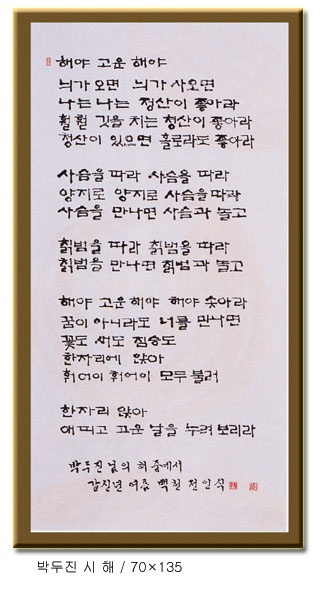 해야 고운 해야
늬가 오면 늬가사 오면
나는 나는 청산이 좋아라
훨훨훨 깃을 치는 청산이 좋아라
청산이 있으면 홀로라도 좋아라
사슴을 따라 사슴을 따라
양지로 양지로 사슴을 따라
사슴을 만나면 사슴과 놀고
칡범을 따라 칡범을 따라
칡범을 만나면 칡범과 놀고
해야 고운 해야 해야 솟아라
꿈이 아니라도 너를 만나면
꽃도 새도 짐승도
한자리에 앉아
워어이 워어이 모두 불러
한자리 앉아
애띠고 고운 날을 누려 보리라
박두진 님의 해 중에서
갑신년 여름 백천 전인식
박두진 시 해 / 70×135